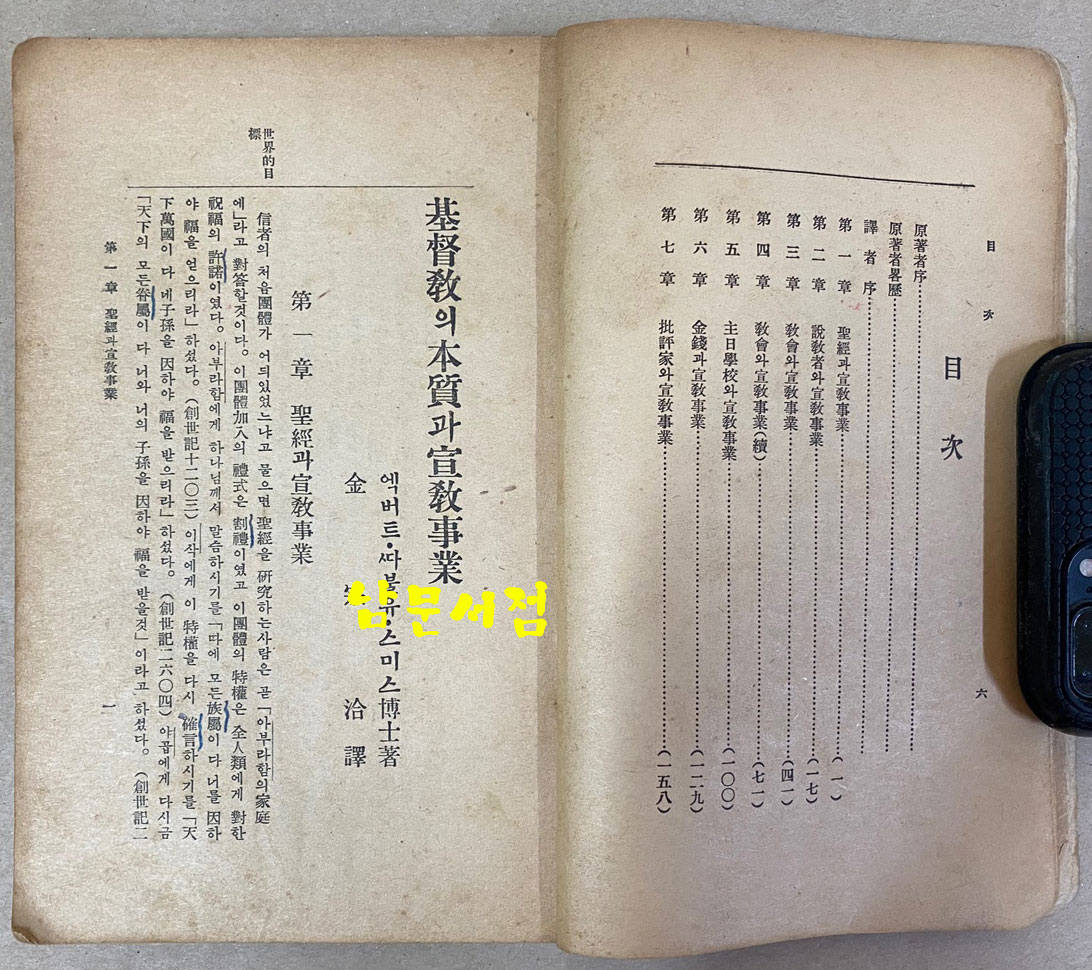 目次
六
目次
原著者序
原著者畧歷
譯者序
第一章 聖經과宣敎事業 (一)
第二章 說敎者와宣敎事業 (一七)
第三章 敎會와宣敎事業 (四一)
第四章 敎會와宣敎事業(續) (七一)
第五章 主日學校와宣敎事業 (一〇〇)
第六章 金錢과宣敎事業 (一二九)
第七章 批評家와宣敎事業 (一五八)
世界的目
標
基督敎의本質과宣敎事業
엑버트·싸불유·스미스博士著
金 洽 譯
남문서점
第一章 聖經과宣敎事業
信者의 처음團體가 어듸있었느냐고 물으면 聖經을 硏究하는사람은 곧「아부라함의家庭
에」라고 對答할것이다。이團體加入의 禮式은 割禮이였고 이團體의 特權은 全人類에게 對한
祝福의 許諾이였다。아부라함에게 하나님께서 말슴하시기를「따에 모든族屬이 다 너를 因하
야 福을 얻으리라」하셨다。(創世記十二〇三) 이삭에게 이 特權을 다시 確言하시기를「天
下萬國이 다 네子孫을 因하야 福을 받으리라」하셨다。(創世記二六〇四) 야곱에게 다시금
「天下의 모든眷屬이 다 너와 너의 子孫을 因하야 福을 받을것」이라고 하셨다。(創世記二
第一章 聖經과宣敎事業
一